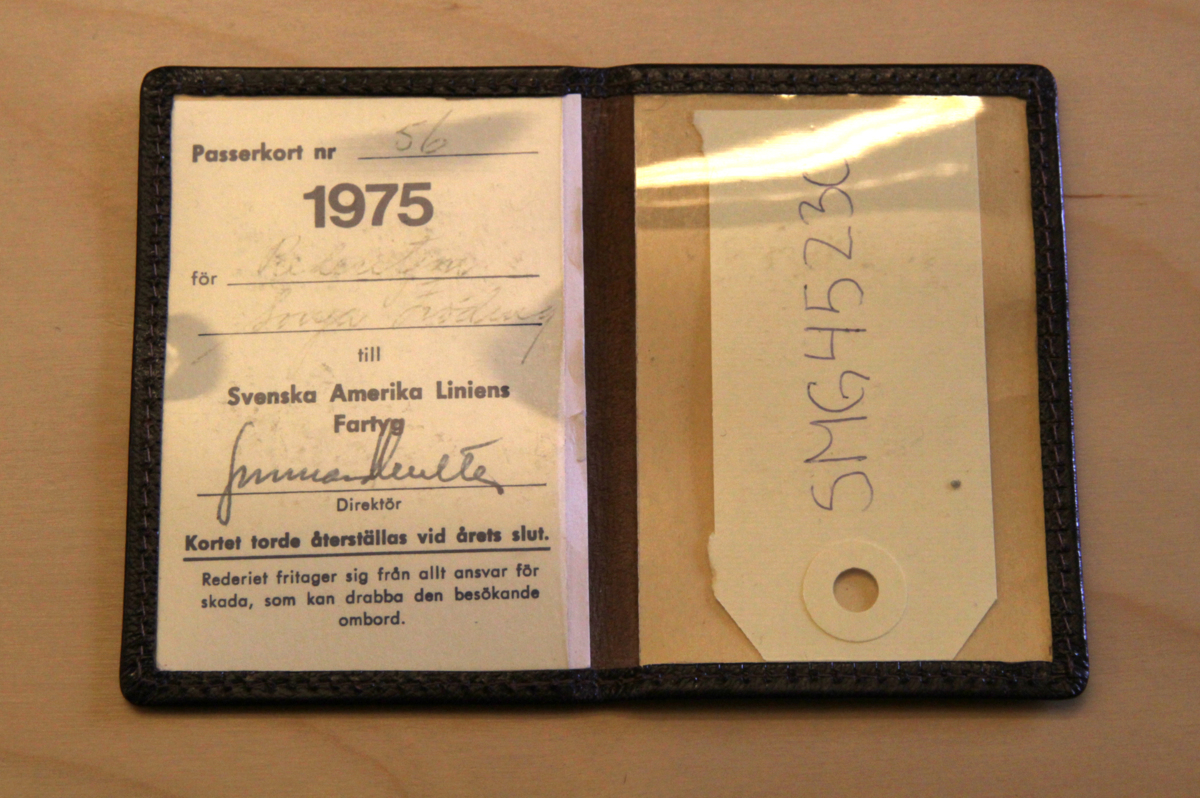 Passerkort nr 56
1975
för
Sonja Fröding
till
Svenska Amerika Liniens
Fartyg
Direktör
Kortet torde återställas vid årets slut.
Rederiet fritager sig från allt ansvar för
skada, som kan drabba den besökande
ombord.
SMG4523C